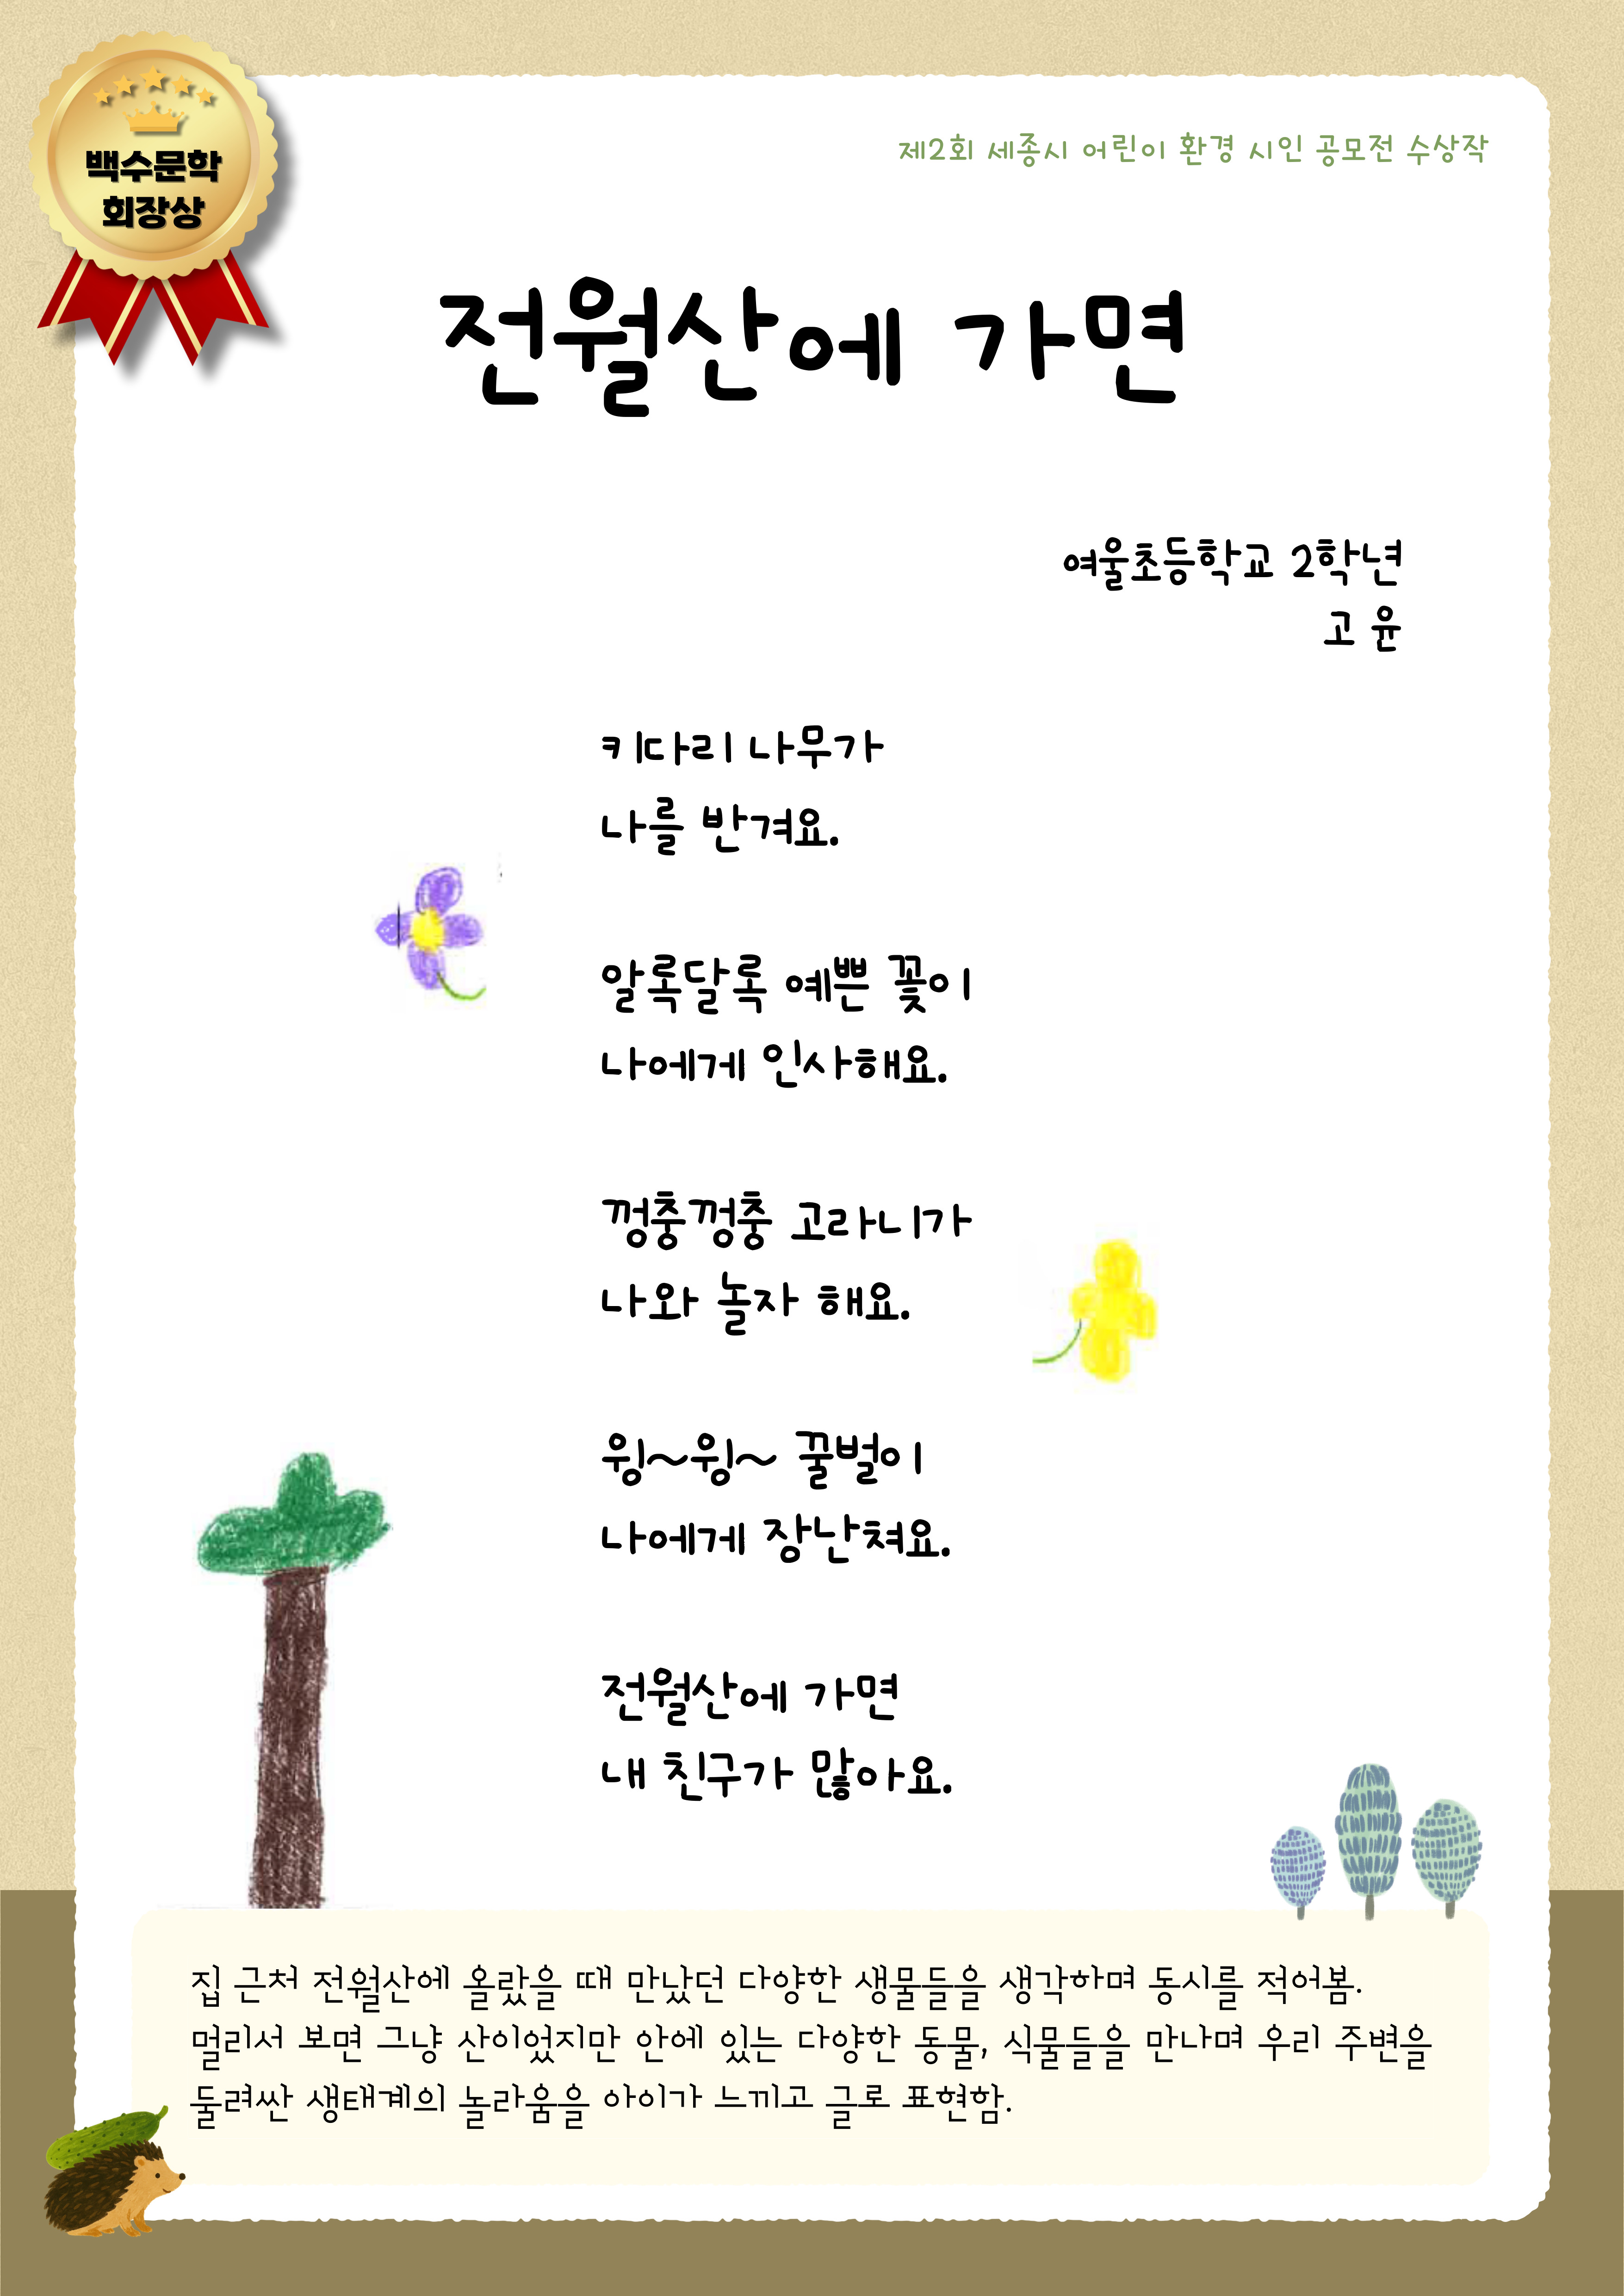 백수문학
회장상
제2회 세종시 어린이 환경 시인 공모전 수상작
전월산에 가면
여울초등학교 2학년
고 윤
키다리 나무가
나를 반겨요.
알록달록 예쁜 꽃이
나에게 인사해요.
껑충껑충 고라니가
나와 놀자 해요.
윙~윙~ 꿀벌이
나에게 장난쳐요.
전월산에 가면
내 친구가 많아요.
집 근처 전월산에 올랐을 때 만났던 다양한 생물들을 생각하며 동시를 적어봄.
멀리서 보면 그냥 산이었지만 안에 있는 다양한 동물, 식물들을 만나며 우리 주변을
둘려싼 생태계의 놀라움을 아이가 느끼고 글로 표현함.